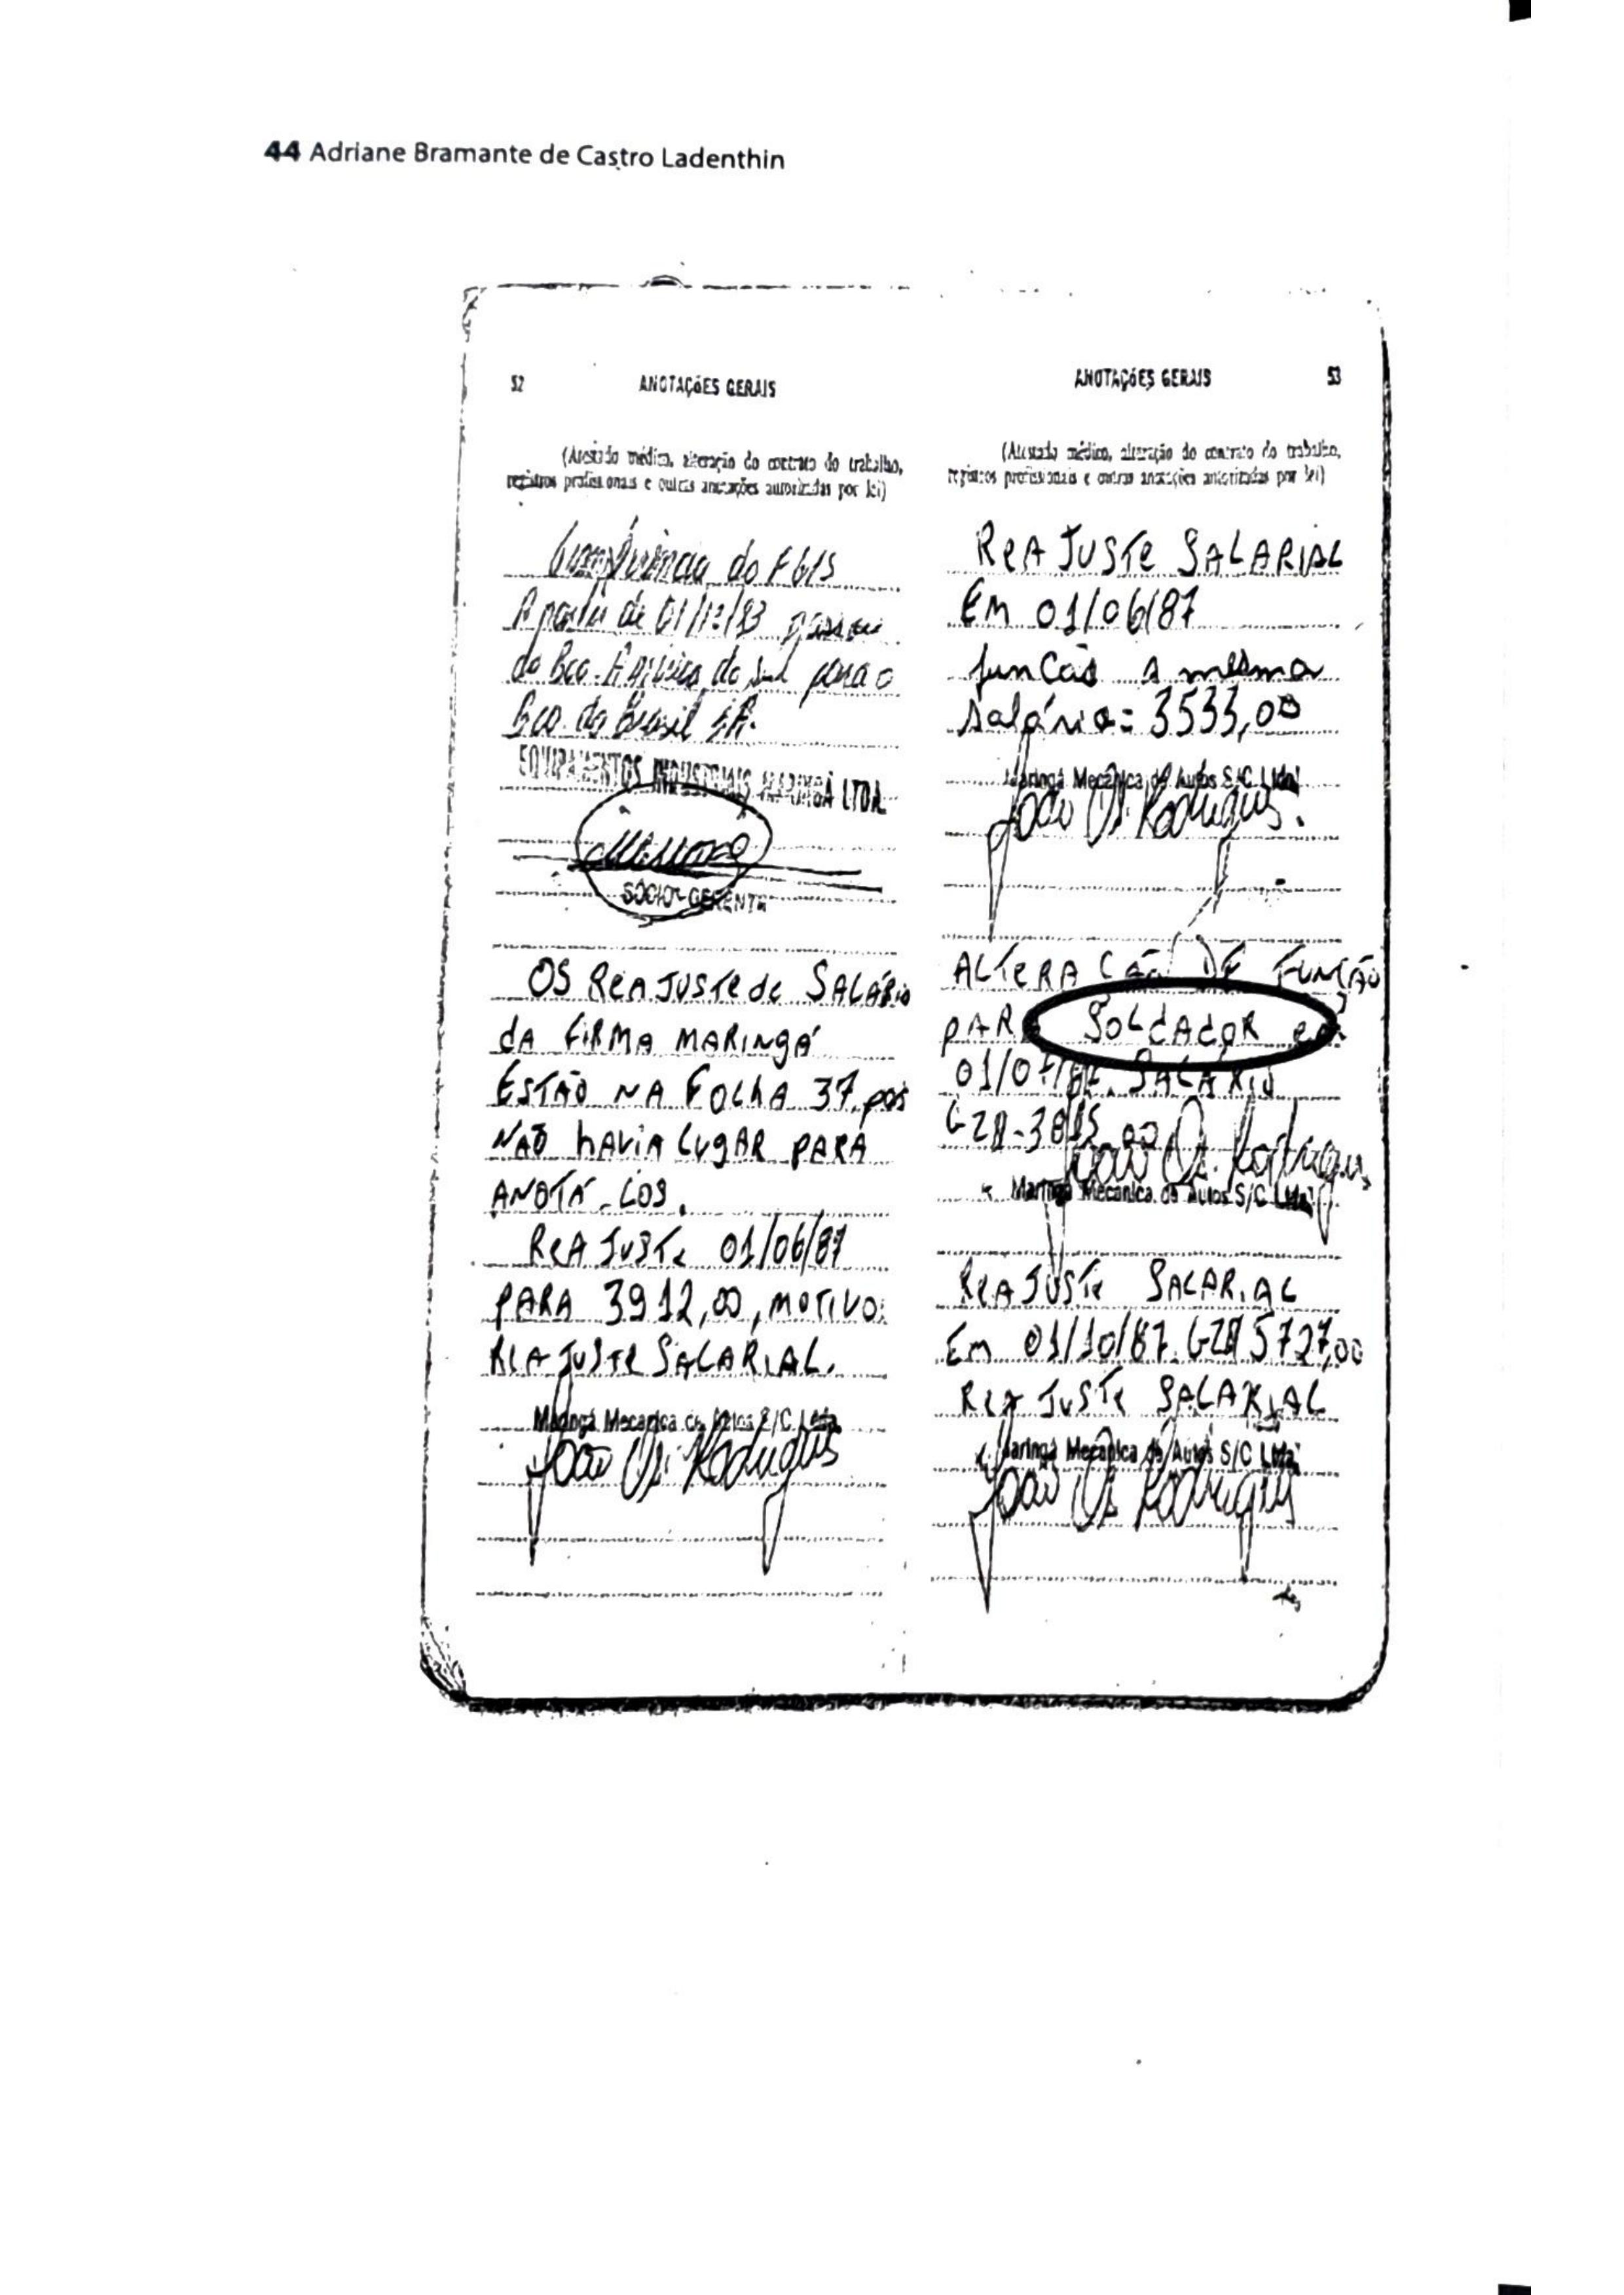 44 Adriane Bramante de Castro Ladenthin
52 ANOTAÇÕES GERAIS
(Atestado médico, alteração do contrato do trabalho,
registros profissionais e outras anotações autorizadas por lei)
do FGTS
A partir de 01/12/83 passou
do Bco. América do Sul para o
Bco. do Brasil SA.
EQUIPAMENTOS INDUSTRIAIS MARINGÁ LTDA.
SÓCIO-GERENTE
OS ReAJUSTE de SALÁRIO
dA FIRMA MARINGÁ
ESTÃO NA FOLHA 37. pois
NAÕ hAViA LUGAR PARA
ANOTÁ-LOS.
ReAJUSTe 01/06/87
PARA 3912,00, MOTIVO:
ReAJUSTE SALARIAL.
Maringá Mecanica de Autos S/C Ltda.
João Rodrigues
ANOTAÇÕES GERAIS 53
(Atestado médico, alteração do contrato do trabalho,
registros profissionais e outras anotações autorizadas por lei)
ReAJUSTe SALARIAL
Em 01/06/87
funcão a mesma
salário = 3533,00
Maringá Mecânica de Autos S/C Ltda
João Rodrigues.
ALTERACÃO DE FUNCÃO
PARA SOLdAdOR em
01/07/87. SALARIO
João Rodrigues
Maringá Mecânica de Autos S/C Ltda
ReAJUSTe SALARIAL
Em 01/10/87. CZ$ 5727,00
ReAJUSTe SALARIAL
Maringá Mecânica de Autos S/C Ltda
João Rodrigues